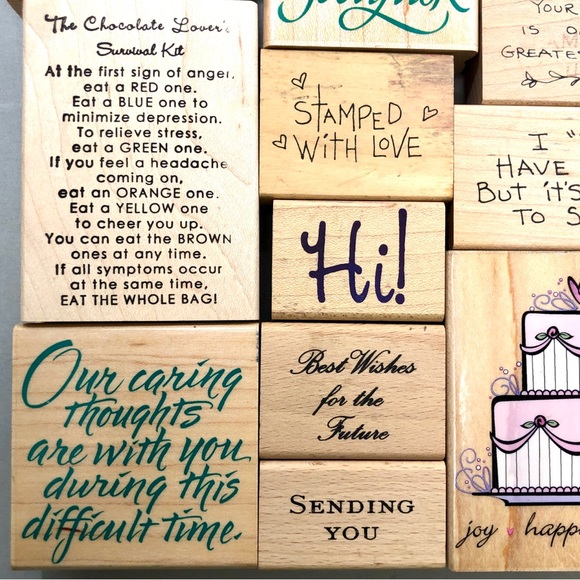 The Chocolate Lover's
Survival Kit
At the first sign of anger,
eat a RED one.
Eat a BLUE one to
minimize depression.
To relieve stress,
eat a GREEN one.
If you feel a headache
coming on,
eat an ORANGE one.
Eat a YELLOW one
to cheer you up.
You can eat the BROWN
ones at any time.
If all symptoms occur
at the same time,
EAT THE WHOLE BAG!
Our caring
thoughts
are with you
during this
difficult time.
STAMPED
WITH LOVE
Hi!
Best Wishes
for the
Future
SENDING
YOU
YOUR
IS O
GREATE
I "
HAVE
BUT it's
TO S
joy happ